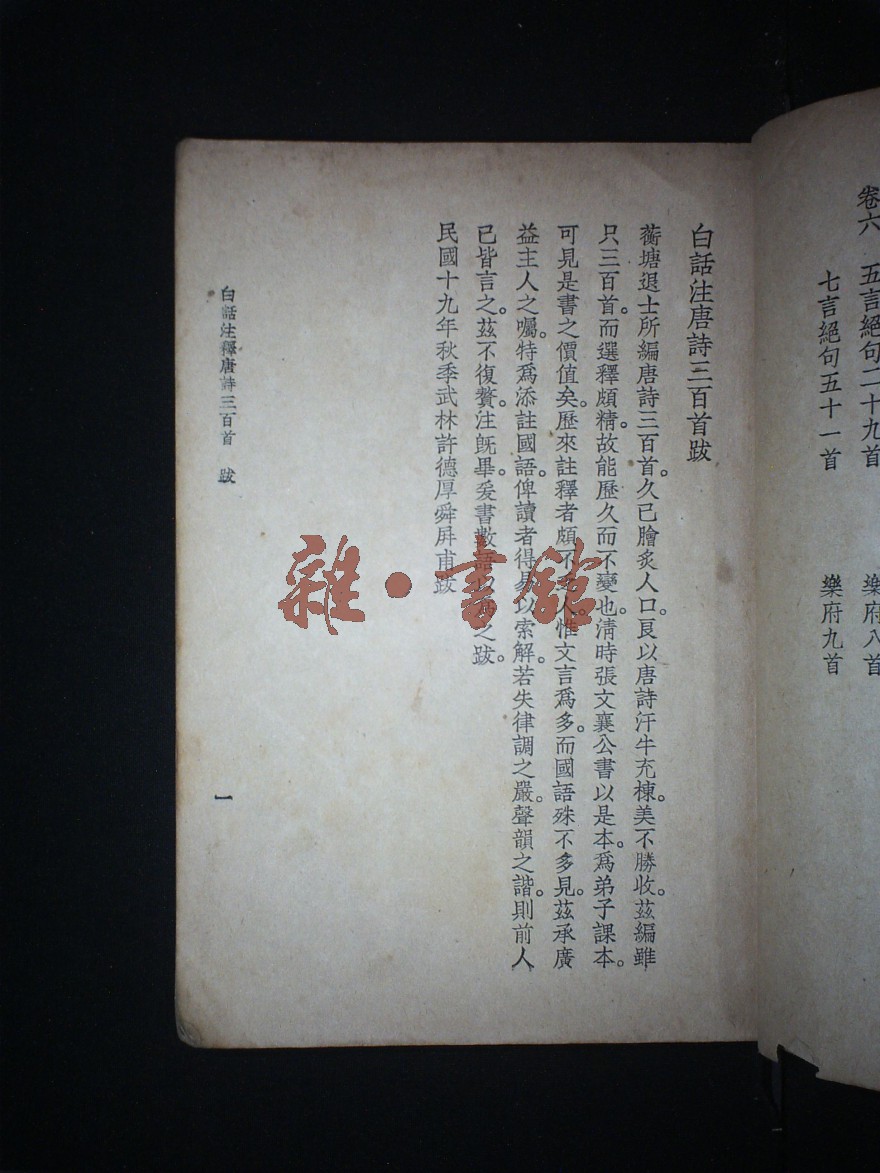 卷六 五言絕句二十九首 樂府八首
七言絕句五十一首 樂府九首
白話注唐詩三百首跋
蘅塘退士所編唐詩三百首。久已膾炙人口。良以唐詩汗牛充棟。美不勝收。茲編雖
只三百首。而選釋頗精。故能歷久而不變也。淸時張文襄公書以是本。爲弟子課本。
可見是書之價值矣。歷來註釋者頗不人。惟文言爲多。而國語殊不多見。茲承廣
益主人之囑。特爲添註國語。俾讀者得易以索解。若失律調之嚴。聲韻之諧。則前人
已皆言之。茲不復贅。注旣畢。爰書數語之跋。
民國十九年秋季武林許德厚舜屛甫跋
白話注釋唐詩三百首 跋
一
雜·書館